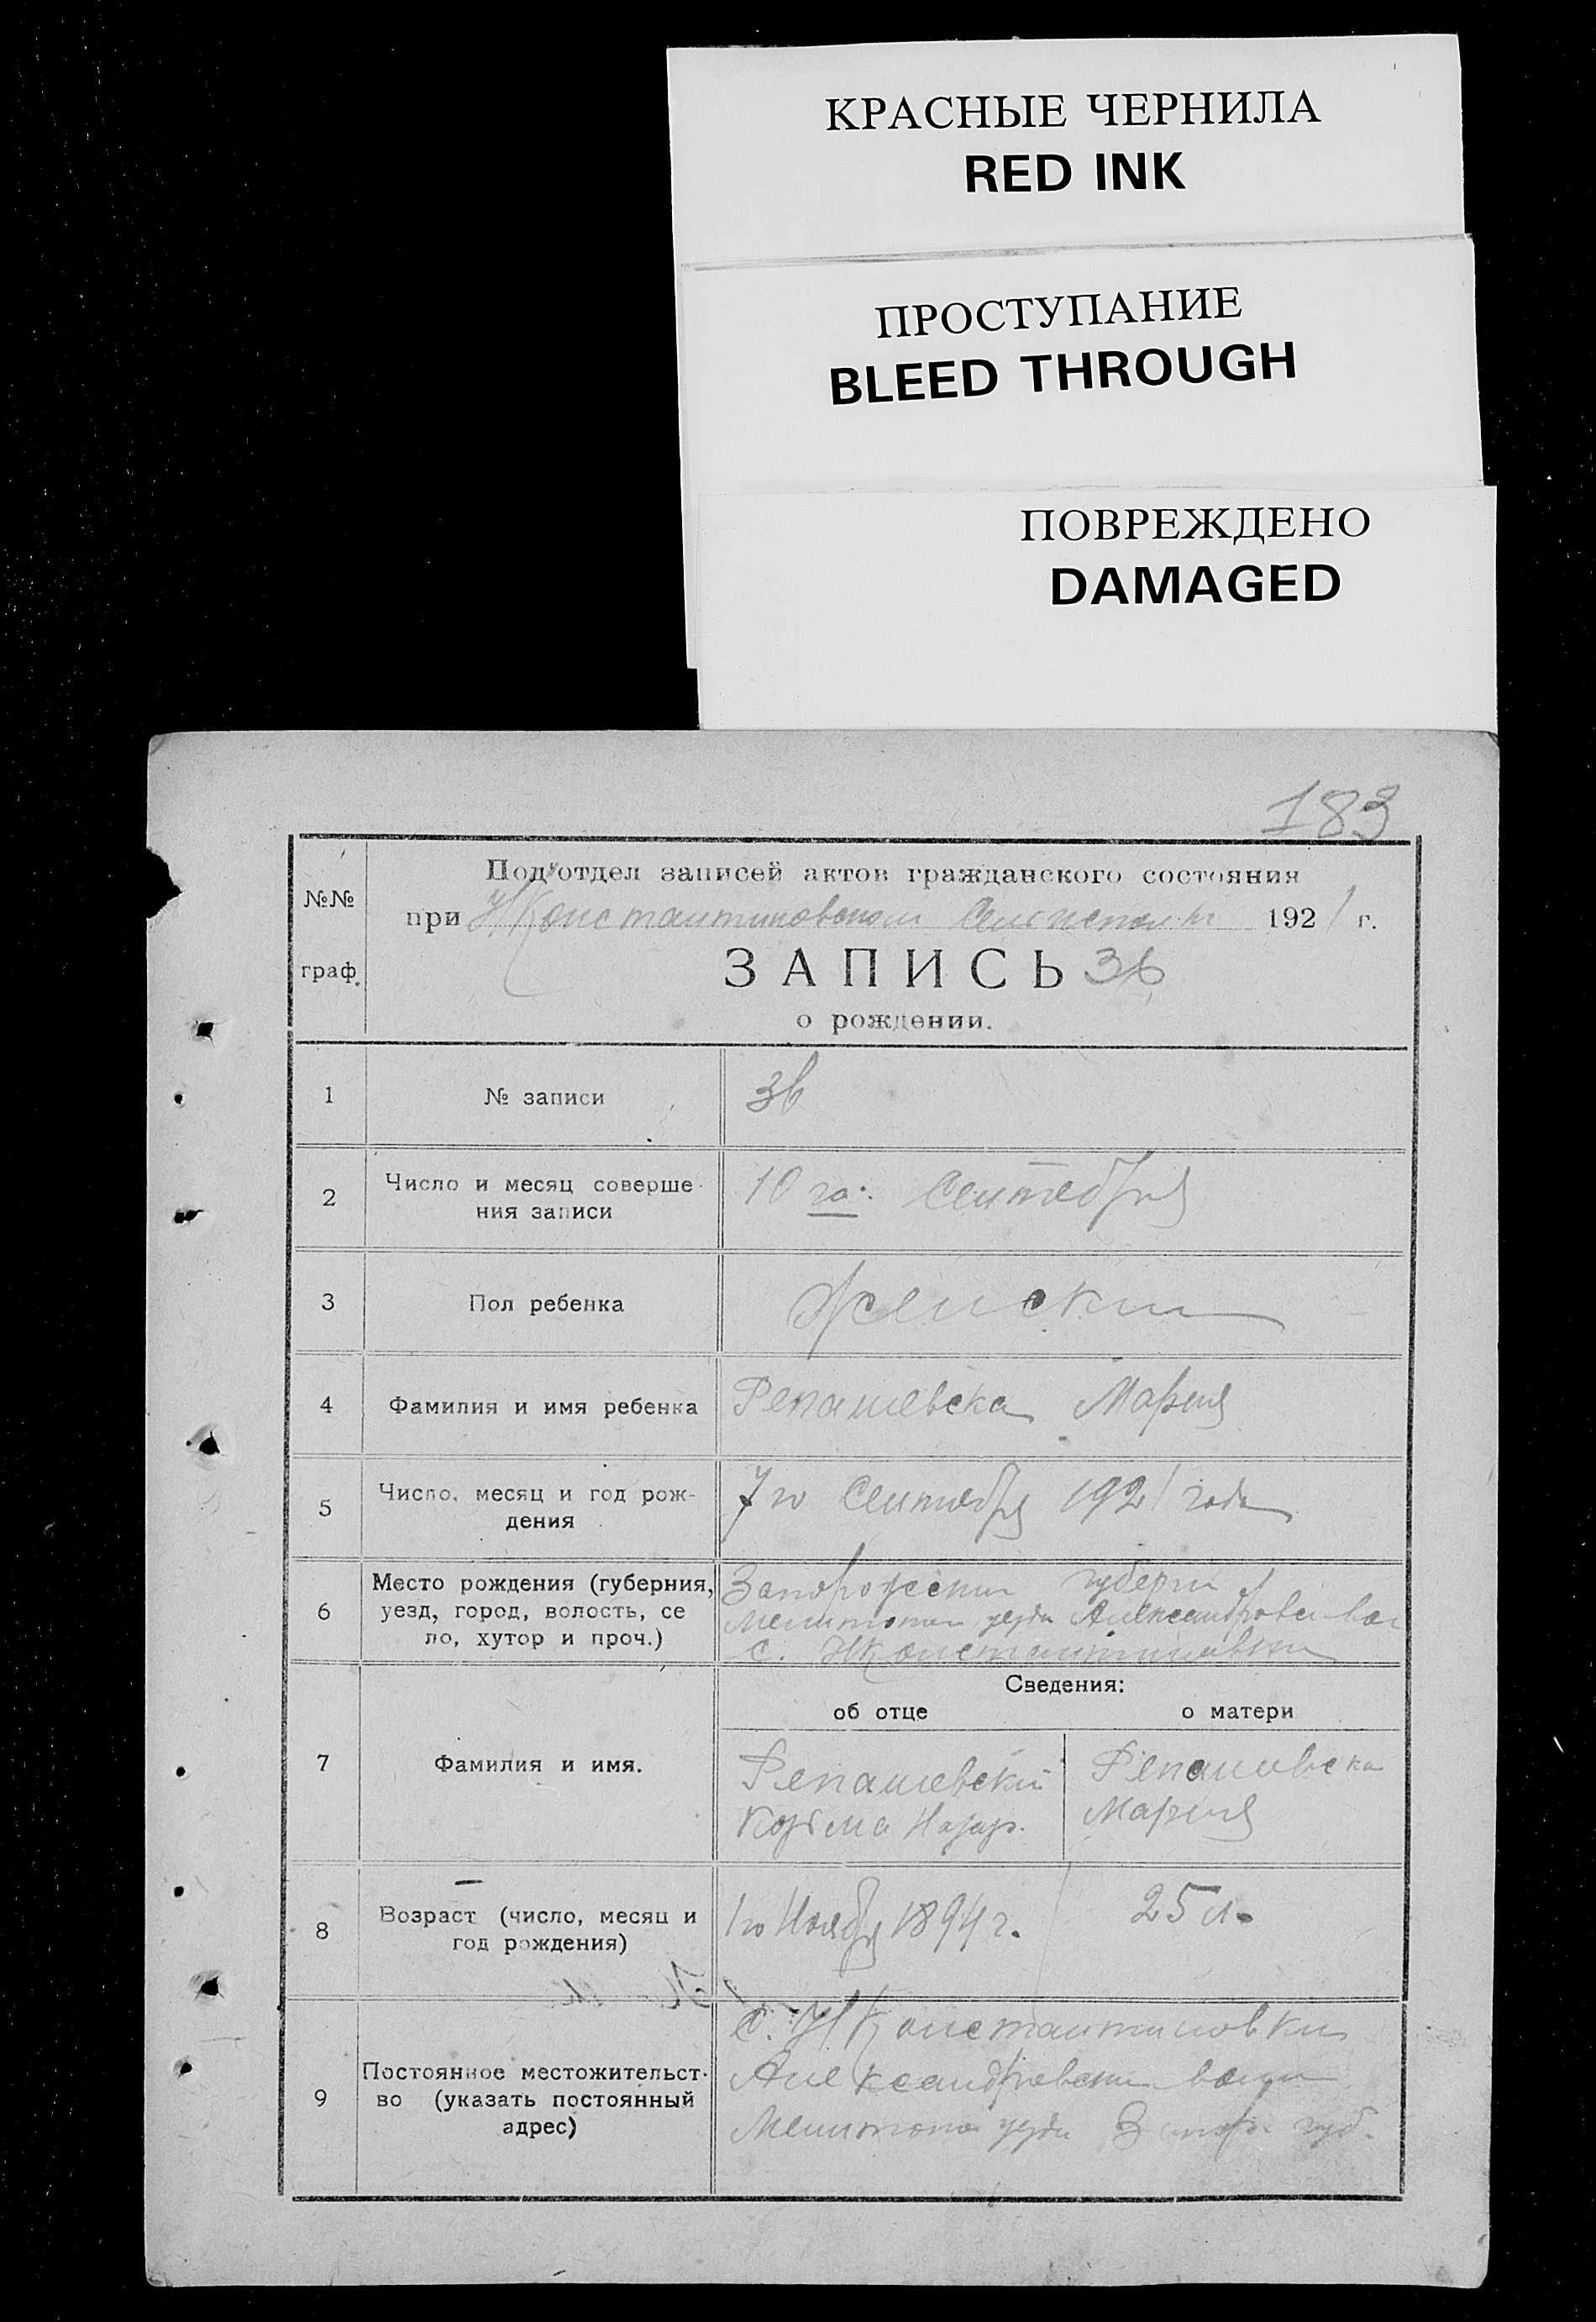 КРАСНЫЕ ЧЕРНИЛА
RED INK
ПРОСТУПАНИЕ
BLEED THROUGH
ПОВРЕЖДЕНО
DAMAGED
183
№№
граф.
Под'отдел записей актов гражданского состояния
при Н Константиновском 1921 г.
ЗАПИСЬ 36
о рождении.
1 № записи 36
2 Число и месяц соверше-
ния записи
10 го Сентебря
3 Пол ребенка Женски
4 Фамилия и имя ребенка Репашевска Мария
5 Число, месяц и год рож-
дения
7 го Сентебря 1921 года
6 Место рождения (губерния,
уезд, город, волость, се
ло, хутор и проч.)
Запорожскии губерни
Мелитопол уезда Александровс вол
с. НКонстантиновки
Сведения:
об отце о матери
7 Фамилия и имя.
Репашевский
Козьма Назар.
Репашевска
Мария
8 Возраст (число, месяц и
год рождения)
1 го Ноября 1894 г.
25 л.
9 Постоянное местожительст-
во (указать постоянный
адрес)
С. НКонстантиновки
Александровски
Мелитопол уезда Запор губ.